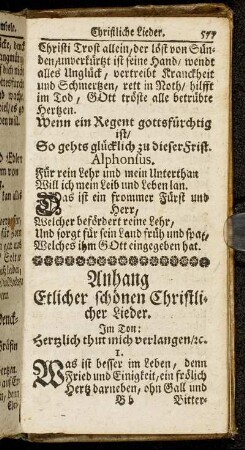 Christliche Lieder. 577
Christi Trost allein, der löst von Sün-
den, unverkürtzt ist seine Hand, wendt
alles Unglück, vertreibt Kranckheit
und Schmertzen, rett in Noth, hilfft
im Tod, GOtt tröste alle betrübte
Hertzen.
Wenn ein Regent gottsfürchtig
ist/
So gehts glücklich zu dieser Frist.
Alphonsus.
Für rein Lehr und mein Unterthan
Will ich mein Leib und Leben lan.
Das ist ein frommer Fürst und
Herr,
Welcher befördert reine Lehr,
Und sorgt für sein Land früh und spat,
Welches ihm GOtt eingegeben hat.
Anhang
Etlicher schönen Christli-
cher Lieder.
Im Ton:
Hertzlich thut mich verlangen/ꝛc.
1.
Was ist besser im Leben, denn
Fried und Einigkeit, ein frölich
Hertz darneben, ohn Gall und
B b Bitter-